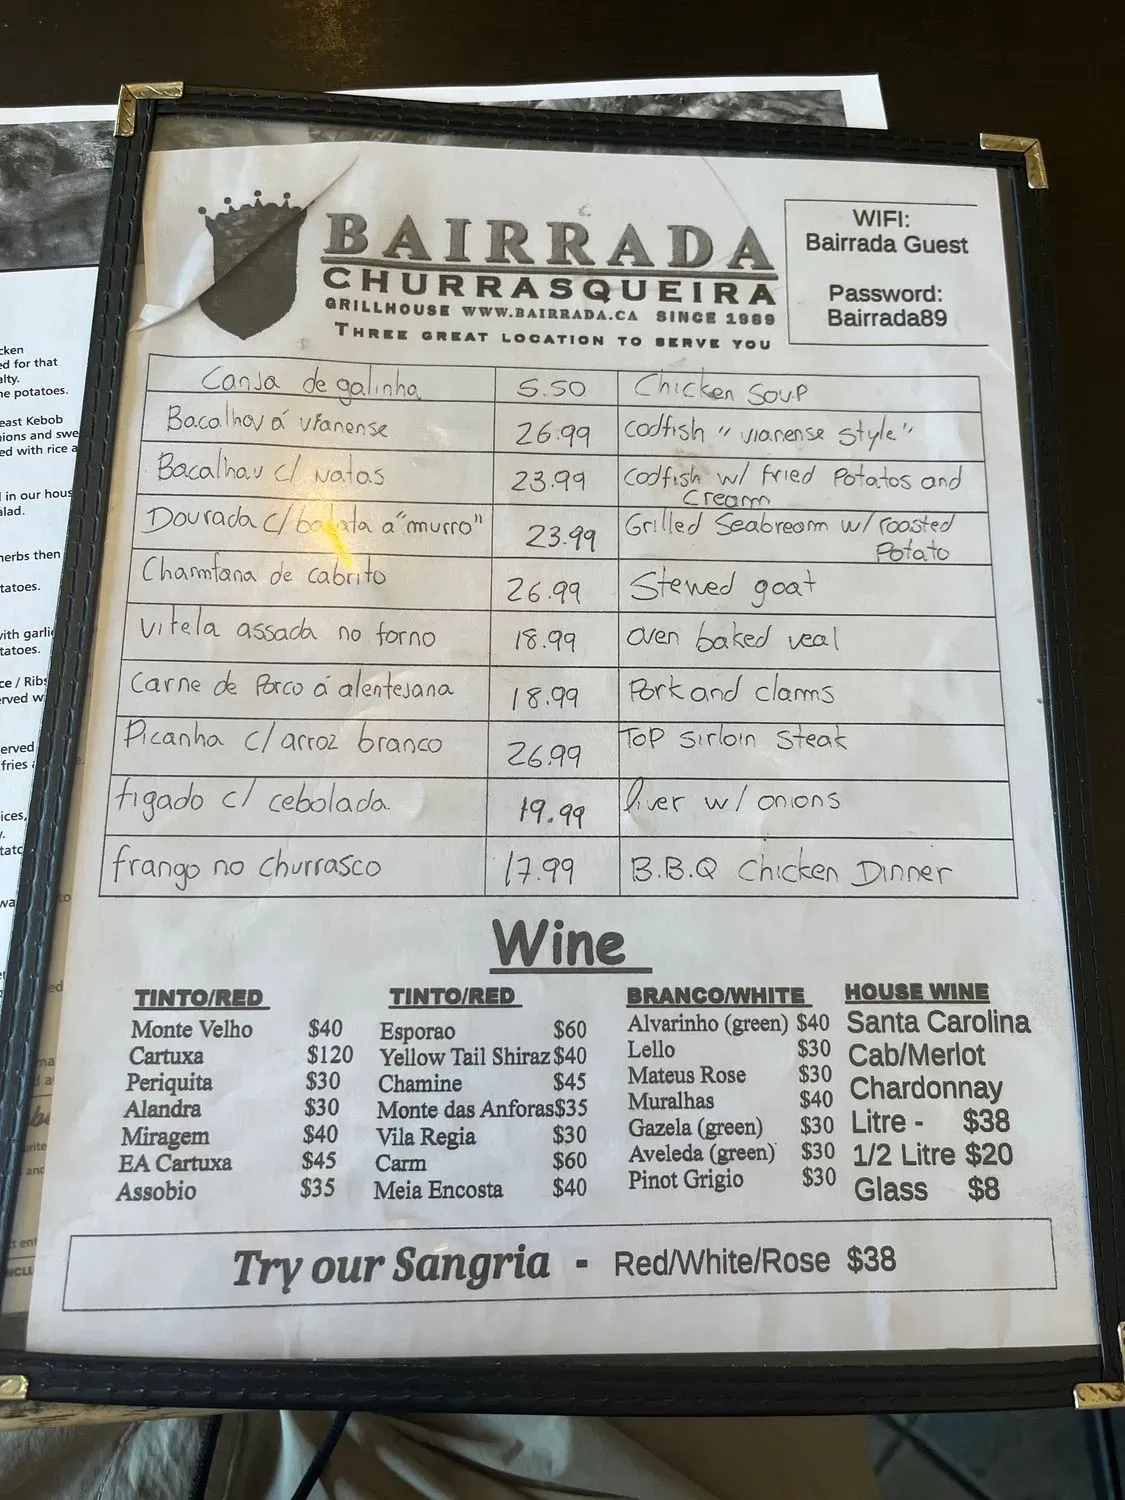 BAIRRADA
CHURRASQUEIRA
GRILLHOUSE WWW.BAIRRADA.CA SINCE 1989
THREE GREAT LOCATION TO SERVE YOU
WIFI:
Bairrada Guest
Password:
Bairrada89
Canja de galinha 5.50 Chicken Soup
Bacalhau á vianense 26.99 Codfish "vianense style"
Bacalhau c/ natas 23.99 Codfish w/ fried Potatos and
Cream
Dourada c/ batata a "murro" 23.99 Grilled Seabream w/ roasted
Potato
Chanfana de cabrito 26.99 Stewed goat
vitela assada no forno 18.99 oven baked veal
Carne de Porco á alentejana 18.99 Pork and clams
Picanha c/ arroz branco 26.99 Top sirloin steak
figado c/ cebolada 19.99 liver w/ onions
frango no churrasco 17.99 B.B.Q Chicken Dinner
Wine
TINTO/RED
Monte Velho $40
Cartuxa $120
Periquita $30
Alandra $30
Miragem $40
EA Cartuxa $45
Assobio $35
TINTO/RED
Esporao $60
Yellow Tail Shiraz $40
Chamine $45
Monte das Anforas $35
Vila Regia $30
Carm $60
Meia Encosta $40
BRANCO/WHITE
Alvarinho (green) $40
Lello $30
Mateus Rose $30
Muralhas $40
Gazela (green) $30
Aveleda (green) $30
Pinot Grigio $30
HOUSE WINE
Santa Carolina
Cab/Merlot
Chardonnay
Litre - $38
1/2 Litre $20
Glass $8
Try our Sangria - Red/White/Rose $38